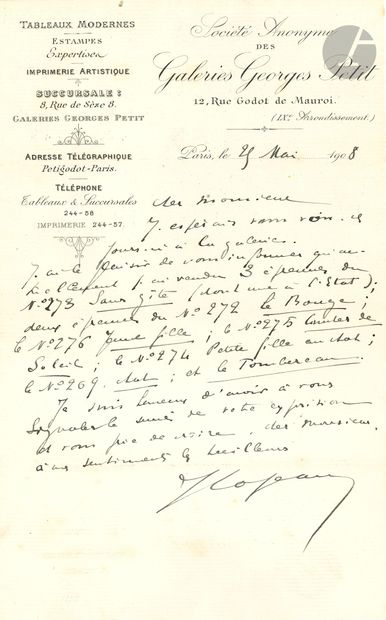 TABLEAUX MODERNES
ESTAMPES
Expertises
IMPRIMERIE ARTISTIQUE
SUCCURSALE :
8, Rue de Sèze 8.
GALERIES GEORGES PETIT
ADRESSE TÉLÉGRAPHIQUE
Petigodot-Paris.
TÉLÉPHONE
Tableaux & Succursales
244-56
IMPRIMERIE 244-57.
Société Anonyme
DES
Galeries Georges Petit
12, Rue Godot de Mauroi.
(IXe Arrondissement.)
Paris, le 25 Mai 1908
cher Monsieur
J'espérais vous voir
jours-ci à la galerie.
J'ai le plaisir de vous informer qu'
j'ai vendu 3 épreuves du
No 273 Sans gîte (dont une à l'Etat) ;
deux épreuves du No 272 le Bouge ;
le No 276 Jeune fille ; le No 275 de
Soleil ; le No 274 Petite fille au chat ;
le No 269 chat ; et le Tombereau.
Je suis heureux d'avoir à vous
signaler le succès de votre exposition
et vous prie de croire, cher Monsieur
à mes sentiments les meilleurs